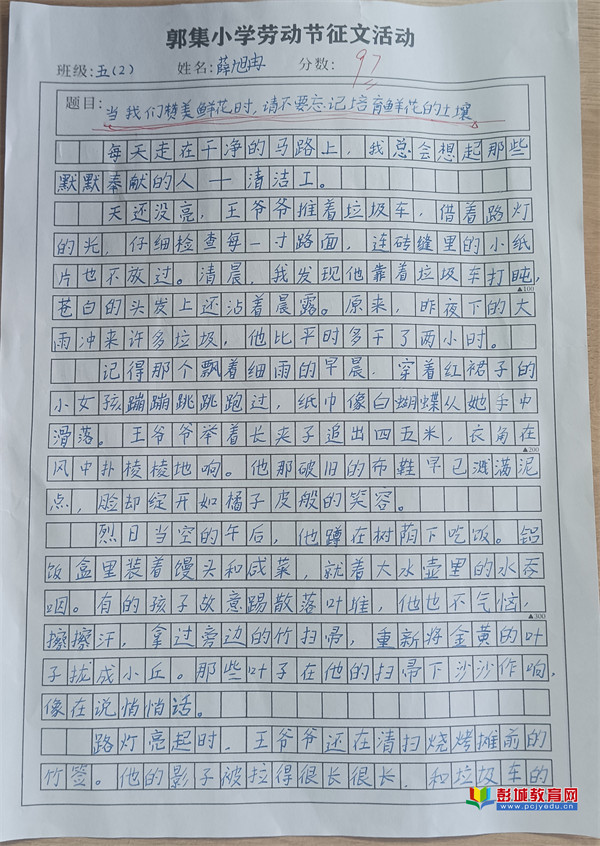 郭集小学劳动节征文活动
班级:五(2) 姓名:薛旭冉 分数:97
题目:当我们赞美鲜花时,请不要忘记培育鲜花的土壤
每天走在干净的马路上,我总会想起那些
默默奉献的人——清洁工。
天还没亮,王爷爷推着垃圾车,借着路灯
的光,仔细检查每一寸路面,连砖缝里的小纸
片也不放过。清晨,我发现他靠着垃圾车打盹,
▲100
苍白的头发上还沾着晨露。原来,昨夜下的大
雨冲来许多垃圾,他比平时多干了两小时。
记得那个飘着细雨的早晨,穿着红裙子的
小女孩蹦蹦跳跳跑过,纸巾像白蝴蝶从她手中
滑落。王爷爷举着长夹子追出四五米,衣角在
▲200
风中扑棱棱地响。他那破旧的布鞋早已溅满泥
点,脸却绽开如橘子皮般的笑容。
烈日当空的午后,他蹲在树荫下吃饭。铝
饭盒里装着馒头和咸菜,就着大水壶里的水吞
咽。有的孩子故意踢散落叶堆,他也不气恼,
▲300
擦擦汗,拿过旁边的竹扫帚,重新将金黄的叶
子拢成小丘。那些叶子在他的扫帚下沙沙作响,
像在说悄悄话。
路灯亮起时,王爷爷还在清扫烧烤摊前的
竹签。他的影子被拉得很长很长,和垃圾车的
彭城教育网
www.pcjyedu.cn